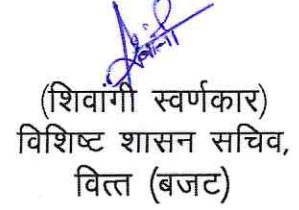 (शिवांगी स्वर्णकार)
विशिष्ट शासन सचिव,
वित्त (बजट)